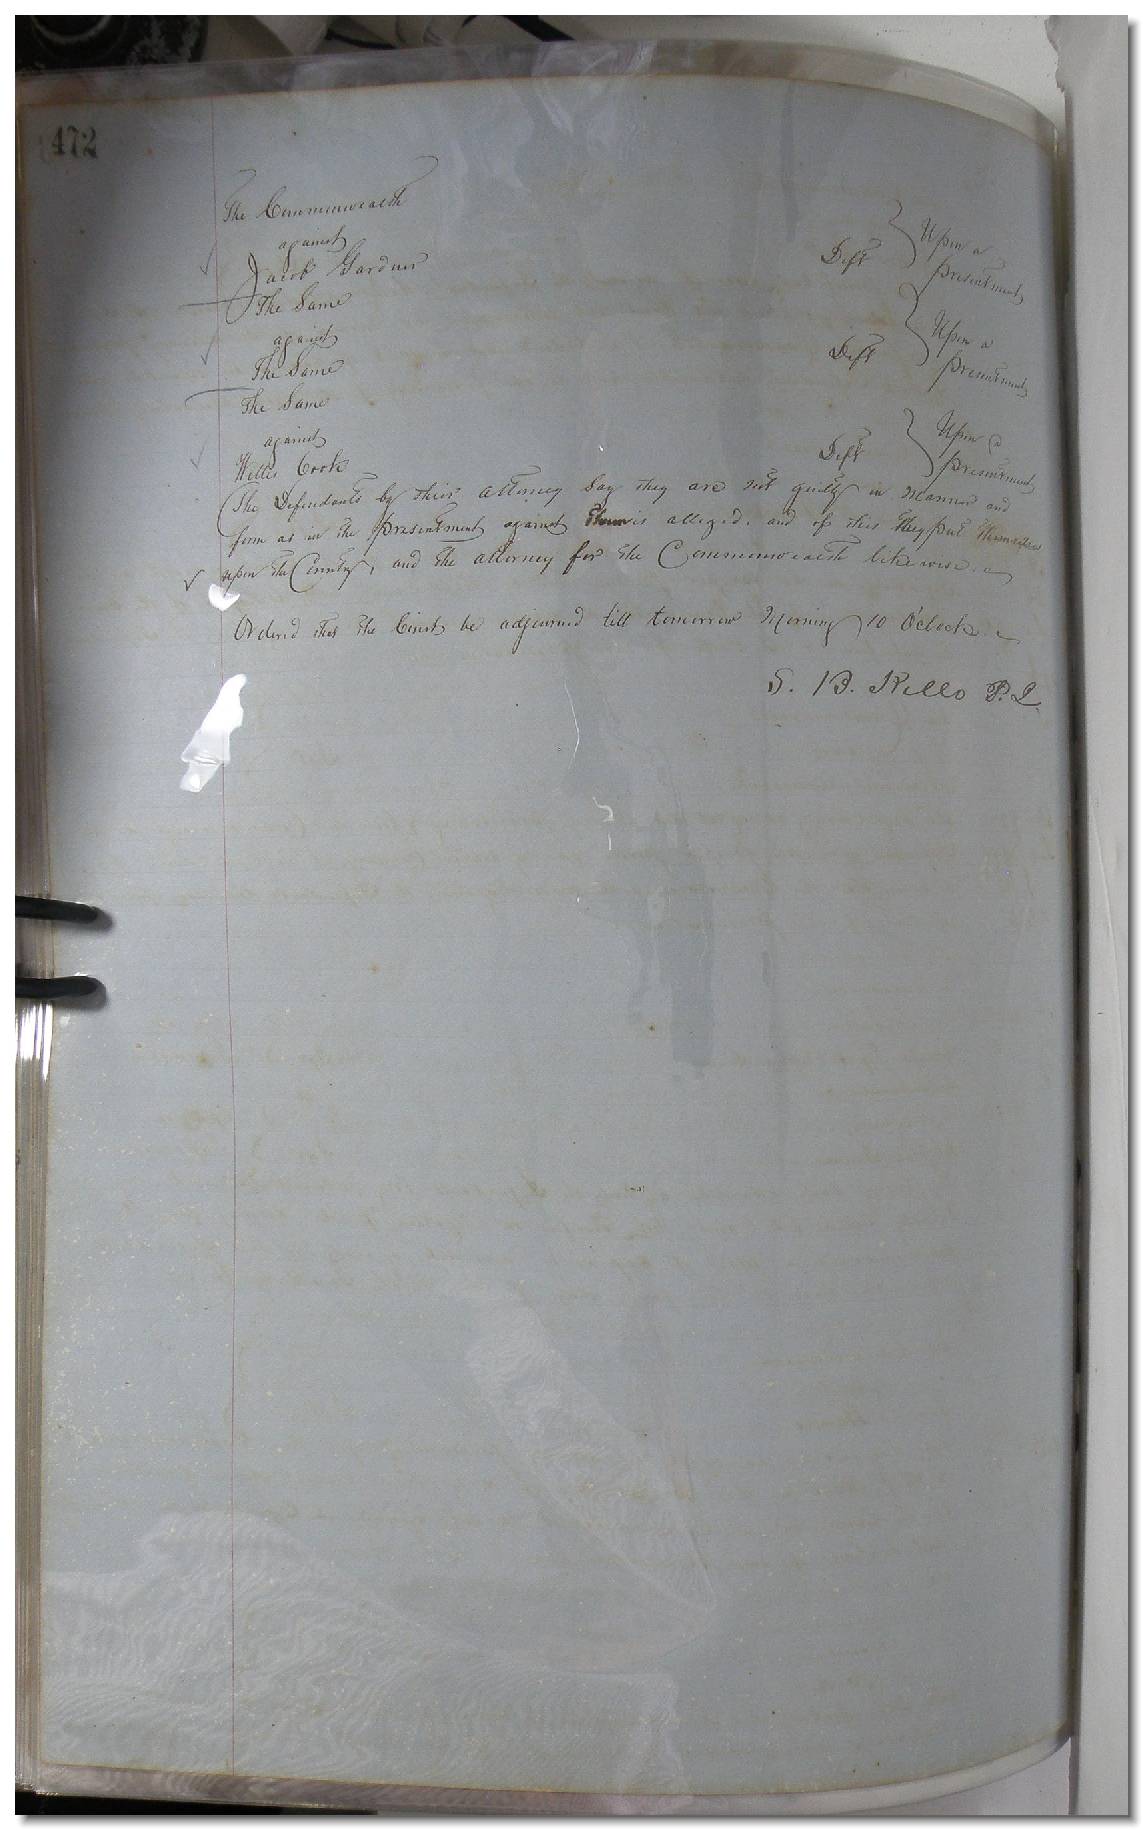 472
The Commonwealth
against
Jacob Gardner Deft } Upon a presentment
The Same
against
The Same Deft } Upon a presentment
The Same
against
Willis Cook Deft } Upon a presentment
The Defendants by their attorney Say they are not guilty in manner and
form as in the presentment against them is alleged. and of this they put themselves
upon the County, and the attorney for the Commonwealth likewise.
Ordered that the Court be adjourned till tomorrow Morning 10 O'clock.
S. B. Kello P. J.